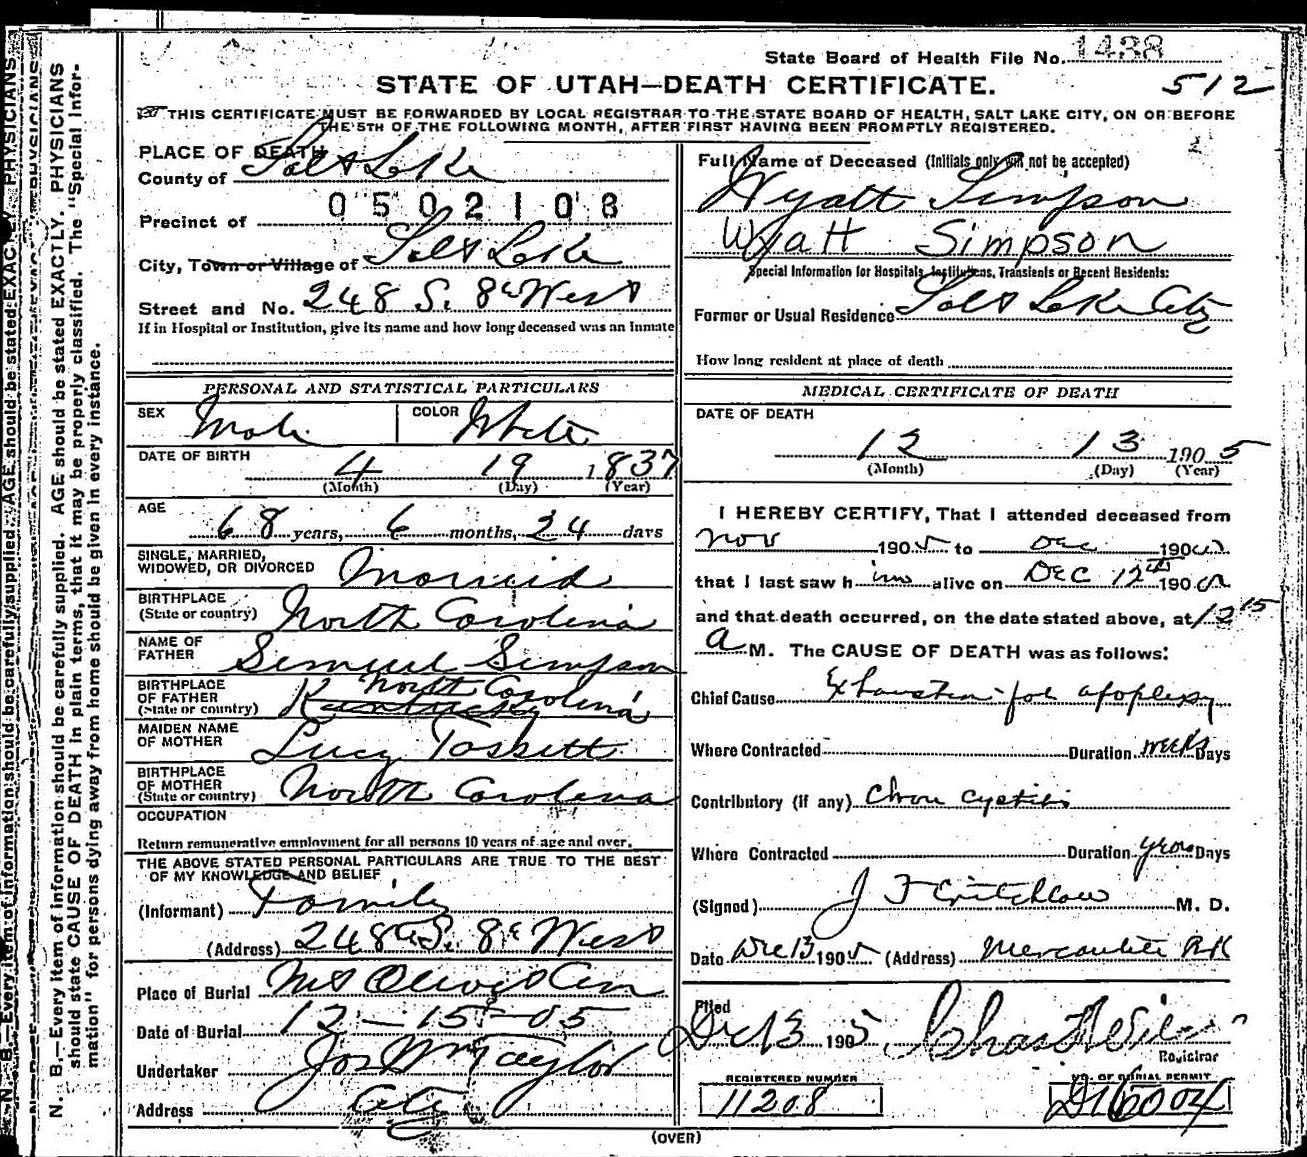 State Board of Health File No. 1438
512
STATE OF UTAH—DEATH CERTIFICATE.
THIS CERTIFICATE MUST BE FORWARDED BY LOCAL REGISTRAR TO THE STATE BOARD OF HEALTH, SALT LAKE CITY, ON OR BEFORE
THE 5TH OF THE FOLLOWING MONTH, AFTER FIRST HAVING BEEN PROMPTLY REGISTERED.
N. B.—Every item of information should be carefully supplied. AGE should be stated EXACTLY. PHYSICIANS
should state CAUSE OF DEATH in plain terms, that it may be properly classified. The "Special Infor-
mation" for persons dying away from home should be given in every instance.
PLACE OF DEATH
County of Salt Lake
0502108
Precinct of
City, Town or Village of Salt Lake
Street and No. 248 S. 8th West
If in Hospital or Institution, give its name and how long deceased was an Inmate
PERSONAL AND STATISTICAL PARTICULARS
SEX Male COLOR White
DATE OF BIRTH 4 19 1837
(Month) (Day) (Year)
AGE
68 years, 6 months, 24 days
SINGLE, MARRIED,
WIDOWED, OR DIVORCED Married
BIRTHPLACE
(State or country) North Carolina
NAME OF
FATHER Simpson
BIRTHPLACE
OF FATHER
(State or country) Kentucky North Carolina
MAIDEN NAME
OF MOTHER Lucy
BIRTHPLACE
OF MOTHER
(State or country) North Carolina
OCCUPATION
Return remunerative employment for all persons 10 years of age and over.
THE ABOVE STATED PERSONAL PARTICULARS ARE TRUE TO THE BEST
OF MY KNOWLEDGE AND BELIEF
(Informant) Family
(Address) 248 S. 8th West
Place of Burial Mt Olivet Cem
Date of Burial 12-15-05
Undertaker Jos Wm Taylor
Address City
Full Name of Deceased (Initials only will not be accepted)
Wyatt Simpson
Wyatt Simpson
Special Information for Hospitals, Institutions, Transients or Recent Residents:
Former or Usual Residence Salt Lake City
How long resident at place of death
MEDICAL CERTIFICATE OF DEATH
DATE OF DEATH
12 13 1905
(Month) (Day) (Year)
I HEREBY CERTIFY, That I attended deceased from
Nov 1905 to Dec 1905
that I last saw him alive on Dec 12th 1905
and that death occurred, on the date stated above, at 12 15
a M. The CAUSE OF DEATH was as follows:
Chief Cause Exhaustion for apoplexy
Where Contracted Duration weeks Days
Contributory (if any) Chron cystitis
Where Contracted Duration years Days
(Signed) J F Critchlow M. D.
Date Dec 13 1905 (Address) Mercantile Bk
Filed
Dec 13 1905 Chas
Registrar
REGISTERED NUMBER NO. OF BURIAL PERMIT
11208 D16004
(OVER)